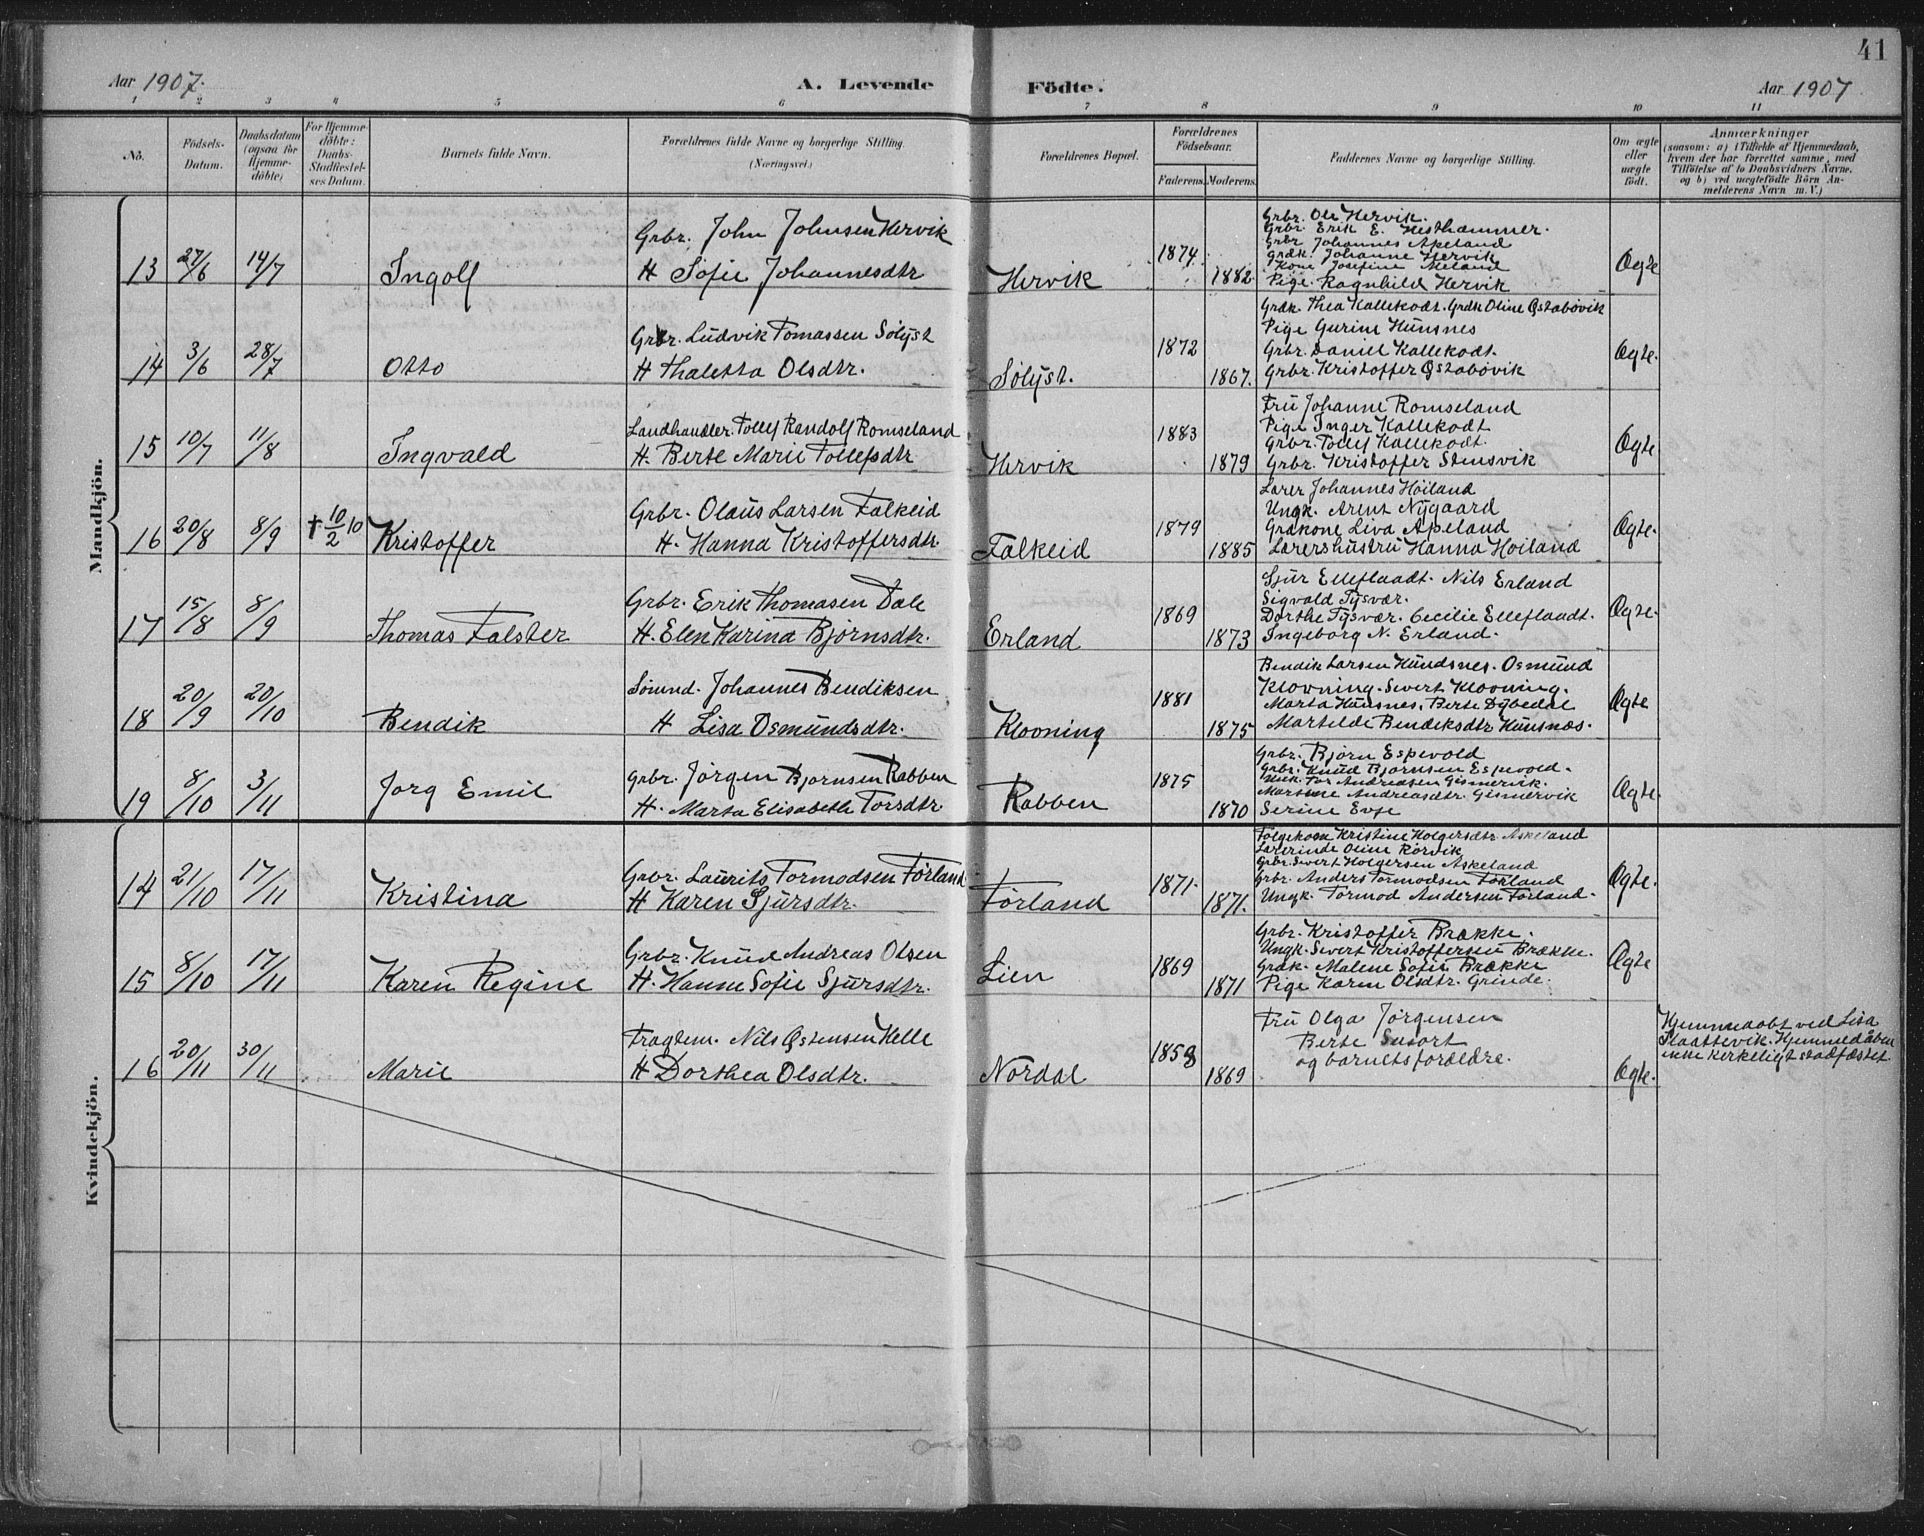 41
Aar 1907.
A. Levende
Födte.
Aar 1907
1 2 3 4 5 6 7 8 9 10 11
No.
Födsels-Datum.
Daabsdatum (ogsaa for Hjemme-döbte)
For Hjemme-döbte: Daabs-Stadfæstel-ses Datum.
Barnets fulde Navn.
Forældrenes fulde Navne og borgerlige Stilling. (Næringsvei.)
Forældrenes Bopæl.
Forældrenes Födselsaar.
Faderens. Moderens.
Faddernes Navne og borgerlige Stilling.
Om ægte eller uægte födt.
Anmærkninger
(saasom: a) i Tilfælde af Hjemmedaab,
hvem der har forrettet samme, med
Tilföielse af to Daabsvidners Navne,
og b) ved uægtefödte Börn An-
melderens Navn m. V.)
Mandkjön.
13 27/6 14/7 Ingolf
Grbr. John Johnsen Hervik
H Sofie Johannesdtr
Hervik 1874. 1882.
Grbr. Ole Hervik.
Grbr. Erik E. Hesthammer.
Grbr Johannes Apeland
Grdk. Johanne Hervik
Kone Josefine Meland
Pige. Ragnhild Hervik
Ægte
14 3/6 28/7 Otto
Grbr. Ludvik Tomassen Sølyst
H Thaletta Olsdtr.
Sølyst. 1872 1867.
Grdk. Thea Kallekodt. Grdk Oline Østabøvik
Pige Gurine Hunsnes
Grbr. Daniel Kallekodt.
Grbr. Kristoffer Østabøvik
Ægte.
15 10/7 11/8 Ingvald
Landhandler. Tollef Randolf Romseland
H. Berte Marie Tollefsdtr
Hervik 1883 1879
Fru Johanne Romseland
Pige Inger Kallekodt
Grbr. Tollef Kallekodt.
Grbr. Kristoffer Stensvik
Ægte
16 20/8 8/9 † 10/2 10 Kristoffer
Grbr. Olaus Larsen Falkeid
H. Hanna Kristoffersdtr.
Falkeid 1879 1885
Lærer Johannes Høiland
Ungk. Arent Nygaard
Grdkone Liva Apeland
Lærershustru Hanna Høiland
Ægte.
17 15/8 8/9 Thomas Falster
Grbr. Erik Thomasen Dale
H. Elen Karina Bjørnsdtr.
Erland 1869 1873
Sjur Elleflaadt. Nils Erland
Sigvald Tysvær.
Dorthe Tysvær. Cecilie Elleflaadt.
Ingeborg N. Erland.
Ægte.
18 20/9 20/10 Bendik
Sømnd. Johannes Bendiksen
H Lisa Osmundsdtr.
Klovning 1881 1875
Bendik Larsen Hundsnes. Osmund
Klovning. Sivert Klovning.
Marta Hunsnes. Berte Dybedal
Martelde Bendeksdtr Hunsnæs.
Ægte
19 8/10 3/11 Jorg Emil
Grbr. Jörgen Bjørnsen Rabben
H. Marta Elisabeth Torsdtr.
Rabben 1875 1870
Grbr. Bjørn Espevold
Grbr. Knud Bjørnsen Espevold.
Ungk. Tor Andreasen Gismervik.
Martine Andreasdtr. Gismervik
Serine Evje
Ægte.
Kvindekjön.
14 21/10 17/11 Kristina
Grbr. Laurits Tormodsen Førland
H Karen Sjursdtr.
Førland 1871. 1871.
Følgekona Kristine Holgersdtr. Askeland
Lærerinde Oline Rørvik
Grbr. Sivert Holgersen Askeland
Grbr. Anders Tormodsen Førland
Ungk. Tormod Andersen Førland.
Ægte.
15 8/10 17/11 Karen Regine
Grbr. Knud Andreas Olsen
H. Hanne Sofie Sjursdtr.
Lien 1869 1871
Grbr. Kristoffer Brække.
Ungk. Sivert Kristoffersen Brække.
Grdk. Malene Sofie Brække
Pige Karen Olsdtr. Grinde.
Ægte
16 20/11 30/11 Marie
Fragtem. Nils Østensen Helle
H Dorthea Olsdtr.
Nordal 1858 1869
Fru Olga Jørgensen
Berte Susort
og barnets forældre.
Ægte.
Hjemmedøbt ved Lisa
Slaattevik. Hjemmedåben
ikke kirkeligt stadfæstet.